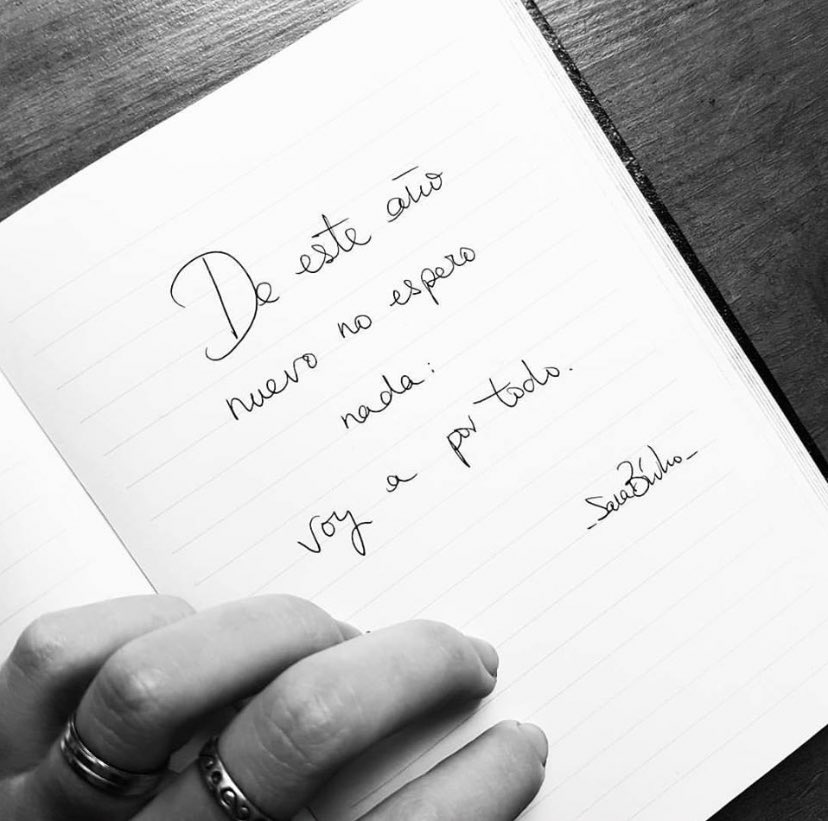 De este año
nuevo no espero
nada:
voy a por todo.
-SaraBúho-